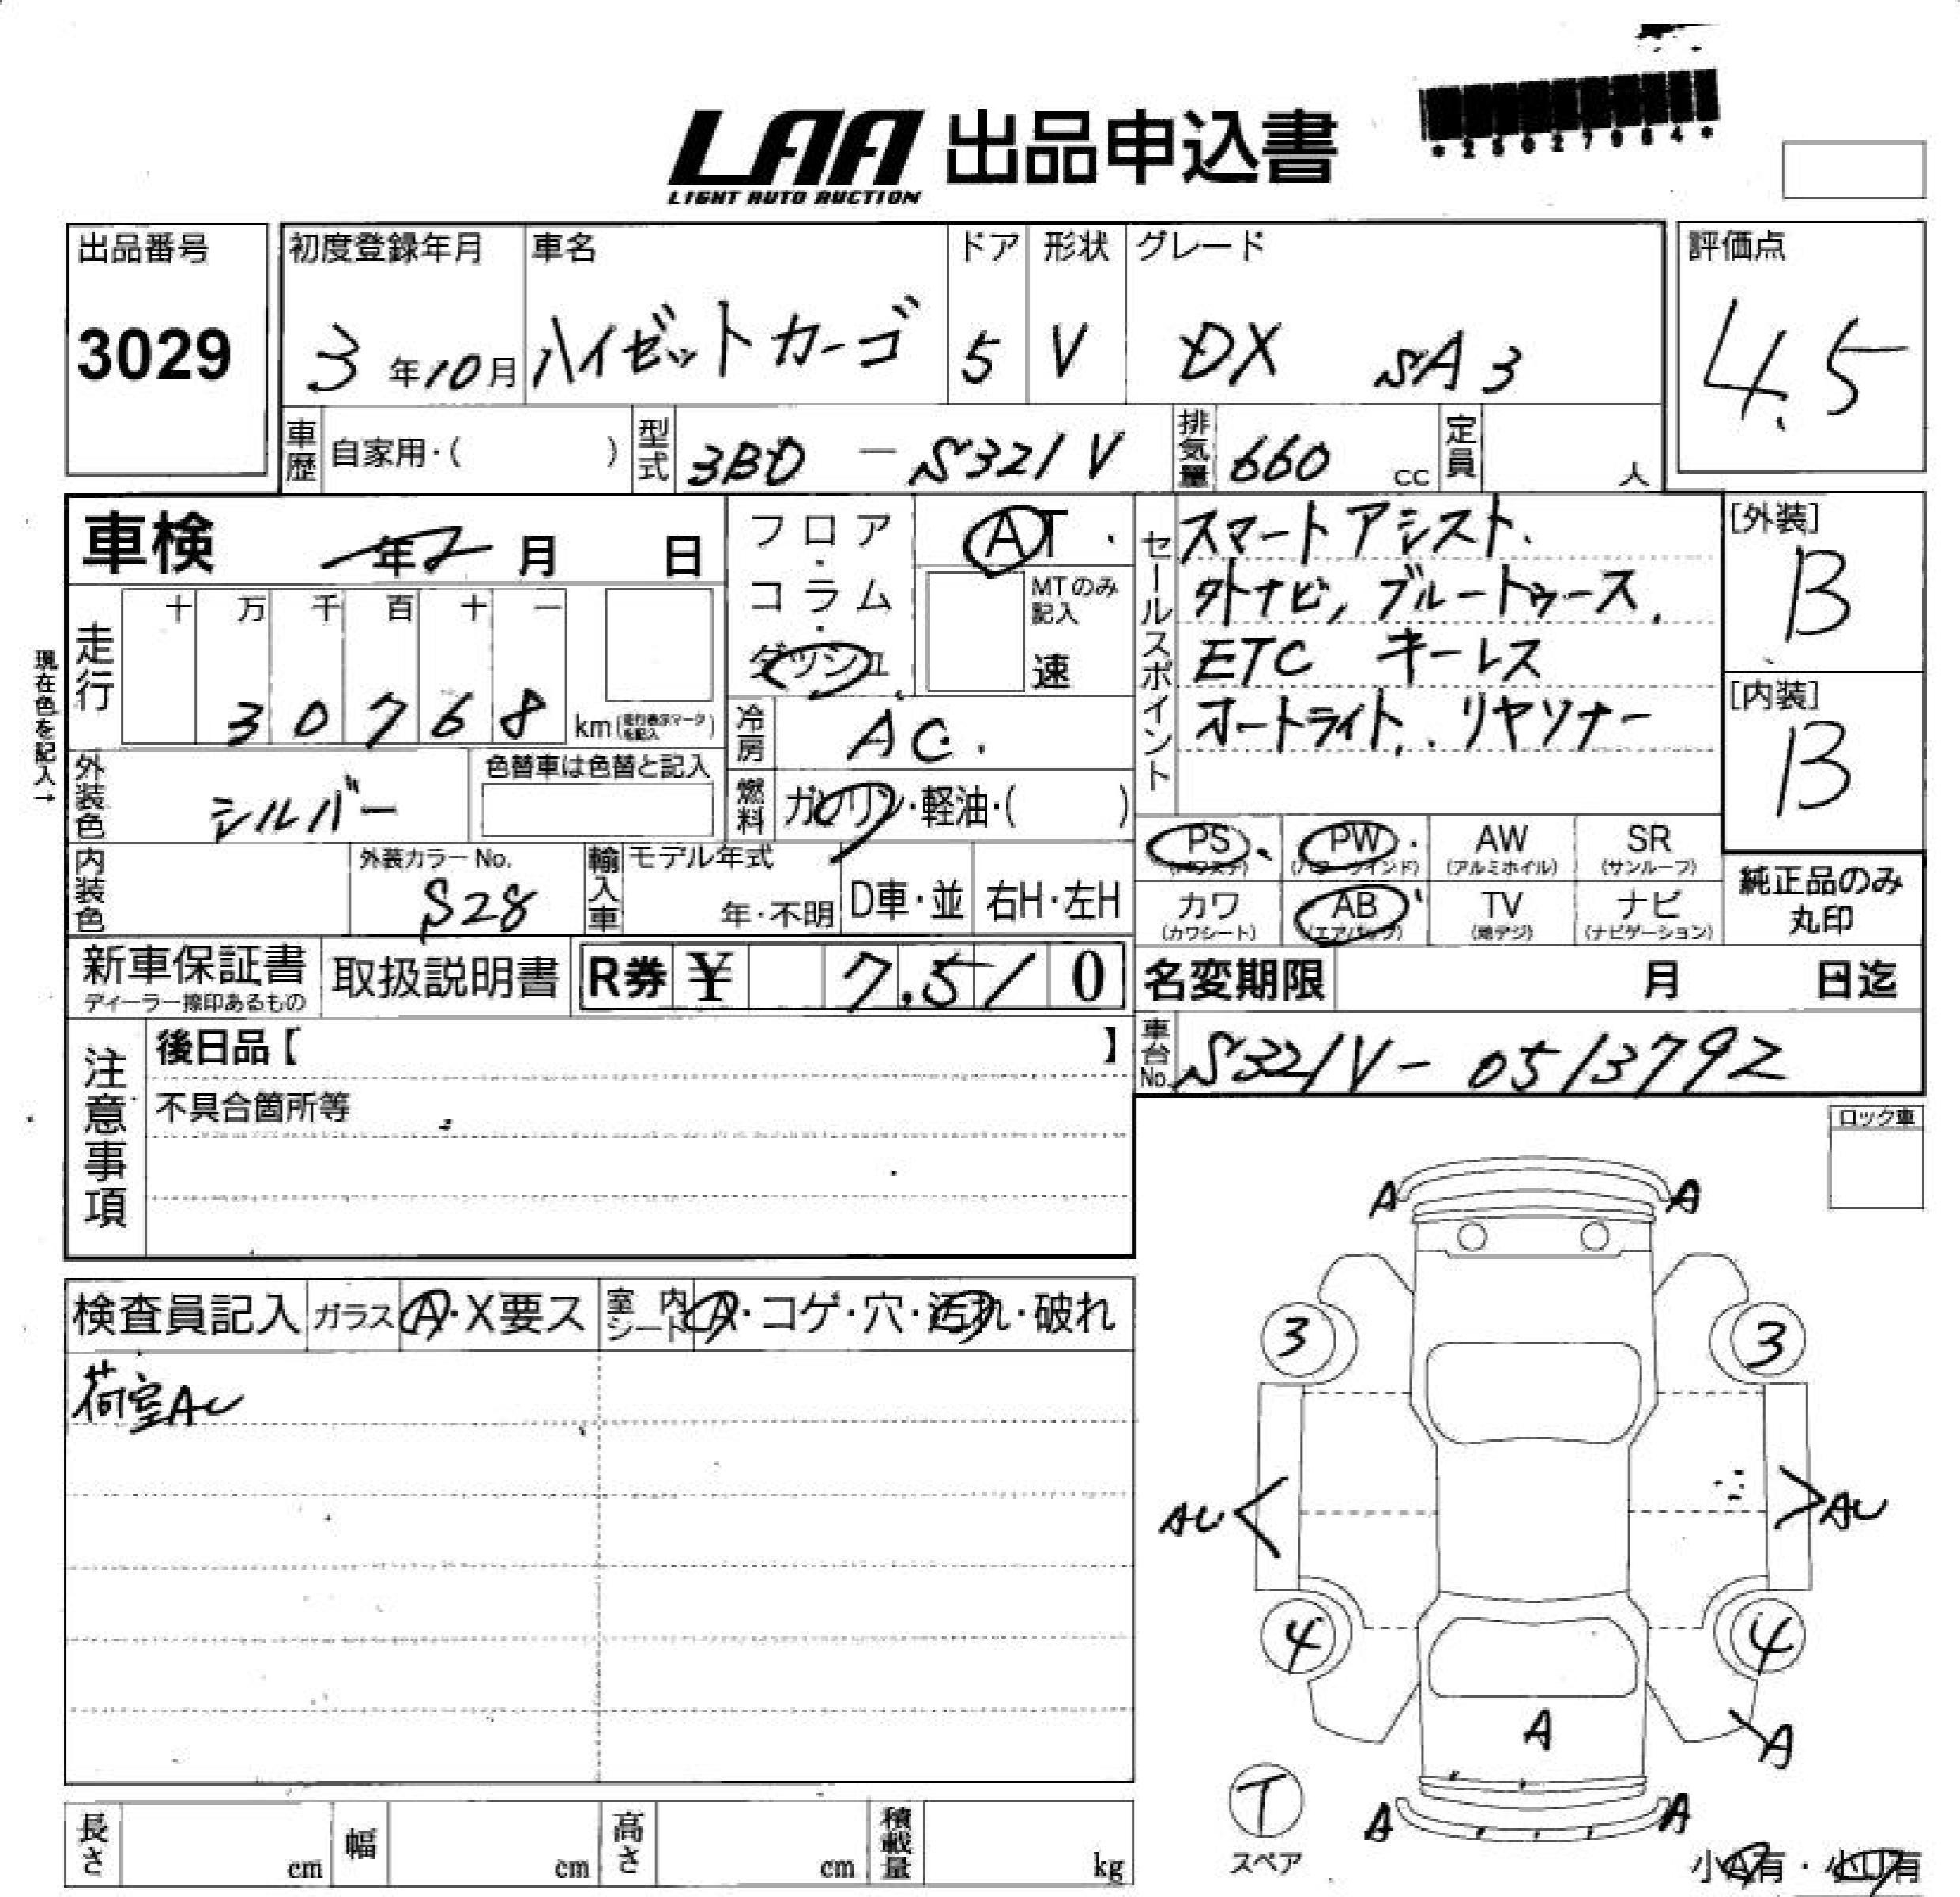 LAA 出品申込書
LIGHT AUTO AUCTION
出品番号
3029
初度登録年月
3年10月
車名
ハイゼットカーゴ
ドア
5
形状
V
グレード
DX SA3
評価点
4.5
車歴 自家用・( )
型式 3BD - S321V
排気量 660 cc
定員 人
車検 年2月 日
フロア・コラム・ダッシュ
AT
MTのみ記入
速
セールスポイント
スマートアシスト.
外ナビ, ブルートゥース.
ETC キーレス
オートライト. リヤソナー
[外装]
B
[内装]
B
現在色を記入→
走行
十 万 千 百 十 一
3 0 7 6 8 km(走行表示マークを記入)
冷房 AC.
外装色 シルバー
色替車は色替と記入
燃料 ガソリン・軽油・( )
内装色
外装カラーNo.
S28
輸入車
モデル年式
年・不明
D車・並
右H・左H
PS (パワステ)
PW (パワーウインド)
AW (アルミホイル)
SR (サンルーフ)
カワ (カワシート)
AB (エアバック)
TV (地デジ)
ナビ (ナビゲーション)
純正品のみ
丸印
新車保証書
ディーラー捺印あるもの
取扱説明書
R券 ¥ 7,510
名変期限 月 日迄
車台No. S321V- 0513792
注意事項
後日品【 】
不具合箇所等
ロック車
検査員記入
ガラス A・X要ス
室内シート A・コゲ・穴・汚れ・破れ
荷室AU
A A
3 3
AU AU
4 4
A
A
T
スペア
A A
小A有・小U有
長さ cm
幅 cm
高さ cm
積載量 kg